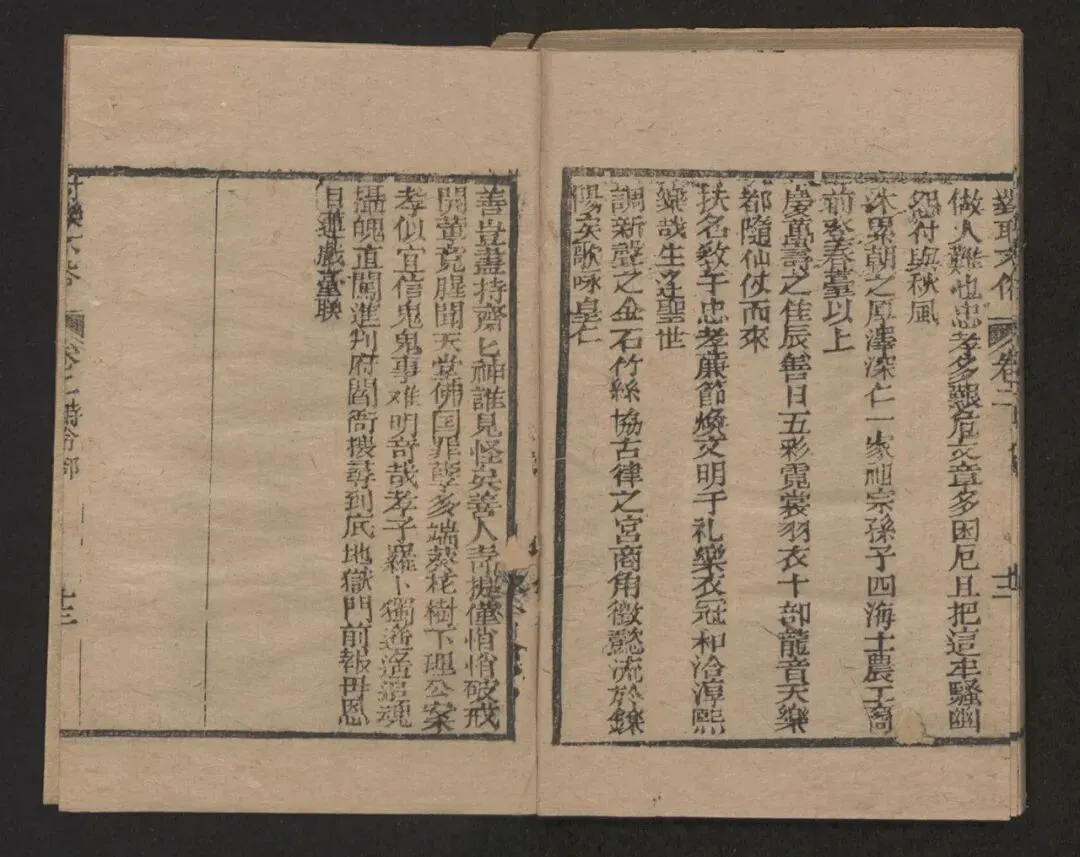 做人難也忠孝多艱危文章多困厄且把這牢騷幽
怨付與秋風
沐累朝之厚澤深仁一家祖宗孫子四海士農工商
前登春臺以上
慶萬壽之佳辰令日五彩霓裳羽衣十部龍音天樂
都隨仙仗而來
扶名教于忠孝廉節煥文明于礼樂衣冠和洽淳熙
樂哉生逢聖世
調新聲之金石竹絲協古律之宮商角徵懿流於鑠
陽矣歌咏皇仁
善豈盡持齋匕神誰見怪矣善人李狗僅悄悄破戒
開葷竟腥聞天堂佛国罪孽多端葵花樹下理公案
孝似宜信鬼鬼事难明奇哉孝子羅卜獨遊遙追魂
攝魄直闖進判府閻衙搜尋到底地獄門前報母恩
目連戲臺联